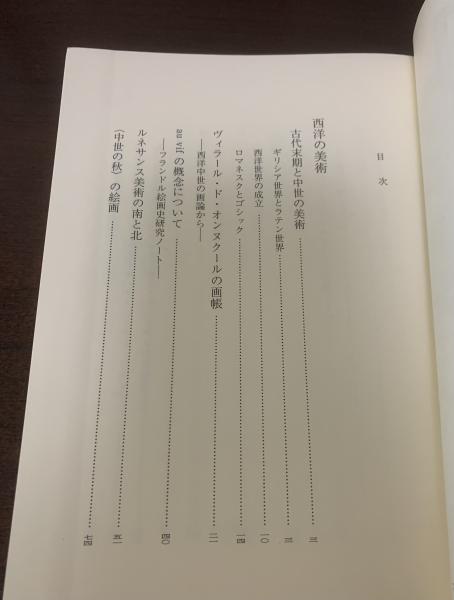 目次
西洋の美術
古代末期と中世の美術……三
ギリシア世界とラテン世界……三
西洋世界の成立……一〇
ロマネスクとゴシック……一四
ヴィラール・ド・オンヌクールの画帳……二一
——西洋中世の画論から——
au vif の概念について……四〇
——フランドル絵画史研究ノート——
ルネサンス美術の南と北……五一
〈中世の秋〉の絵画……七四